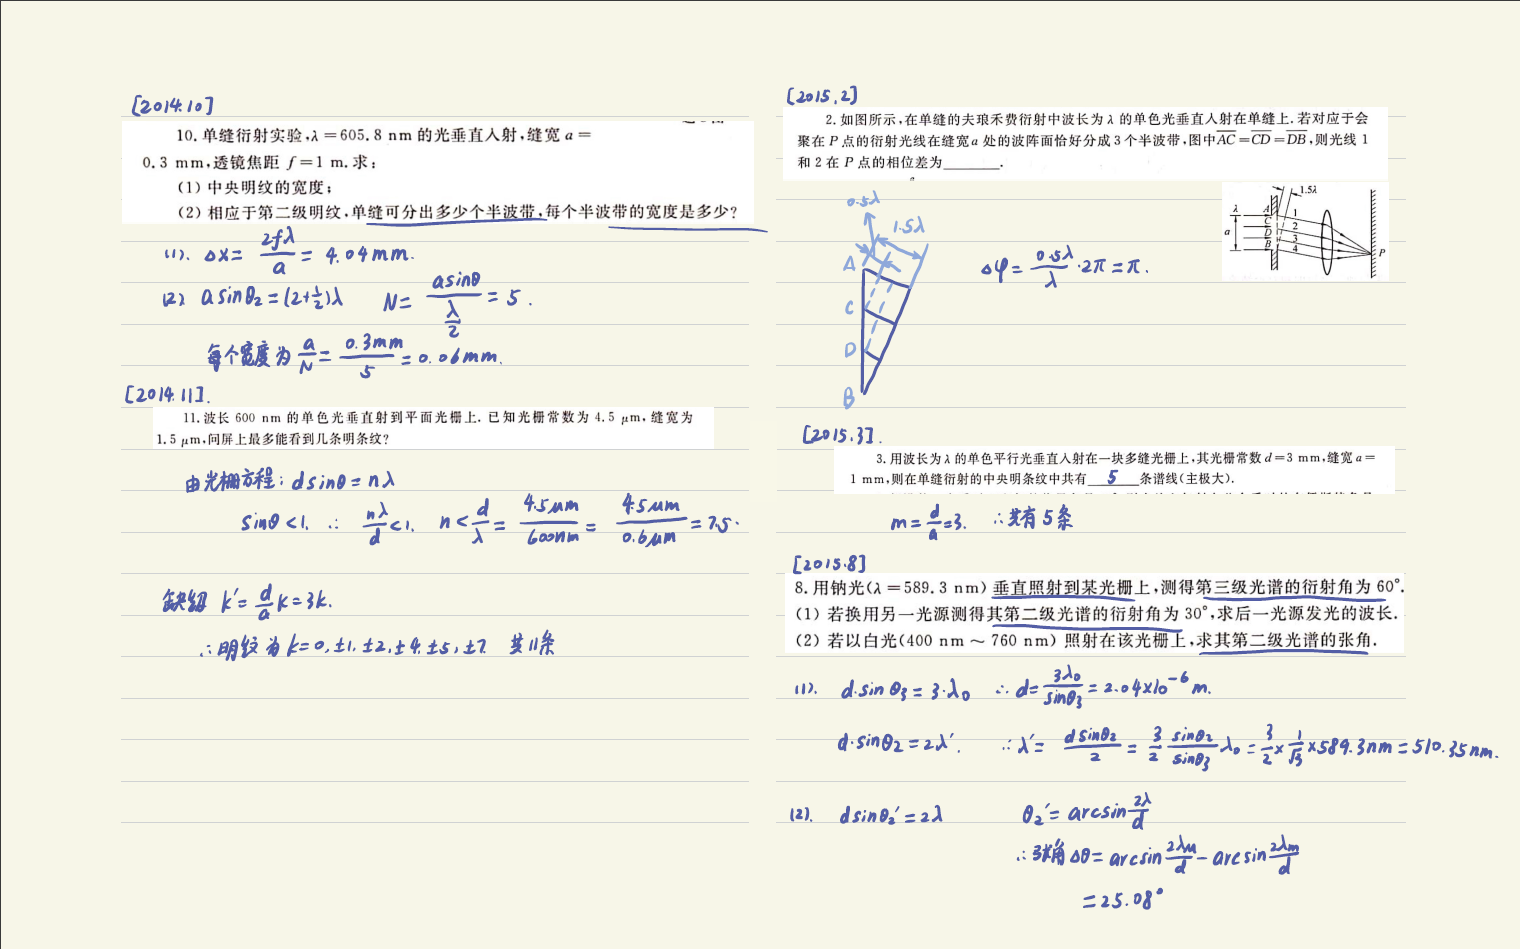 [2014.10]
10. 单缝衍射实验,λ=605.8 nm 的光垂直入射,缝宽 a=
0.3 mm,透镜焦距 f=1 m.求:
(1) 中央明纹的宽度;
(2) 相应于第二级明纹,单缝可分出多少个半波带,每个半波带的宽度是多少?
(1). Δx= 2fλ/a = 4.04mm.
(2) a sinθ₂=(2+½)λ N= asinθ/(λ/2) = 5 .
每个宽度为 a/N = 0.3mm/5 = 0.06mm.
[2014.11].
11. 波长 600 nm 的单色光垂直射到平面光栅上. 已知光栅常数为 4.5 μm, 缝宽为
1.5 μm,问屏上最多能看到几条明条纹?
由光栅方程: dsinθ=nλ
sinθ<1. ∴ nλ/d <1. n< d/λ = 4.5μm/600nm = 4.5μm/0.6μm = 7.5.
缺级 k'= d/a k=3k.
∴明纹为 k=0,±1,±2,±4,±5,±7. 共11条
[2015.2]
2. 如图所示,在单缝的夫琅禾费衍射中波长为 λ 的单色光垂直入射在单缝上. 若对应于会
聚在 P 点的衍射光线在缝宽 a 处的波阵面恰好分成 3 个半波带,图中A̅C̅=C̅D̅=D̅B̅,则光线 1
和 2 在 P 点的相位差为________.
1.5λ
λ
a
A
C
D
B
1
2
3
4
P
0.5λ
1.5λ
A
C
D
B
Δφ= 0.5λ/λ ·2π=π.
[2015.3].
3. 用波长为 λ 的单色平行光垂直入射在一块多缝光栅上,其光栅常数 d=3 mm,缝宽 a=
1 mm,则在单缝衍射的中央明条纹中共有 5 条谱线(主极大).
m= d/a =3. ∴共有5条
[2015.8]
8. 用钠光(λ=589.3 nm) 垂直照射到某光栅上,测得第三级光谱的衍射角为 60°.
(1) 若换用另一光源测得其第二级光谱的衍射角为 30°,求后一光源发光的波长.
(2) 若以白光(400 nm～760 nm) 照射在该光栅上,求其第二级光谱的张角.
(1). d·sinθ₃=3·λ₀ ∴d= 3λ₀/sinθ₃ = 2.04×10⁻⁶m.
d·sinθ₂=2λ'. ∴λ'= dsinθ₂/2 = 3/2 sinθ₂/sinθ₃ λ₀ = 3/2 × 1/√3 ×589.3nm=510.35nm.
(2). dsinθ₂'=2λ θ₂'= arcsin 2λ/d
∴张角Δθ= arcsin 2λ_M/d - arcsin 2λ_m/d
=25.08°